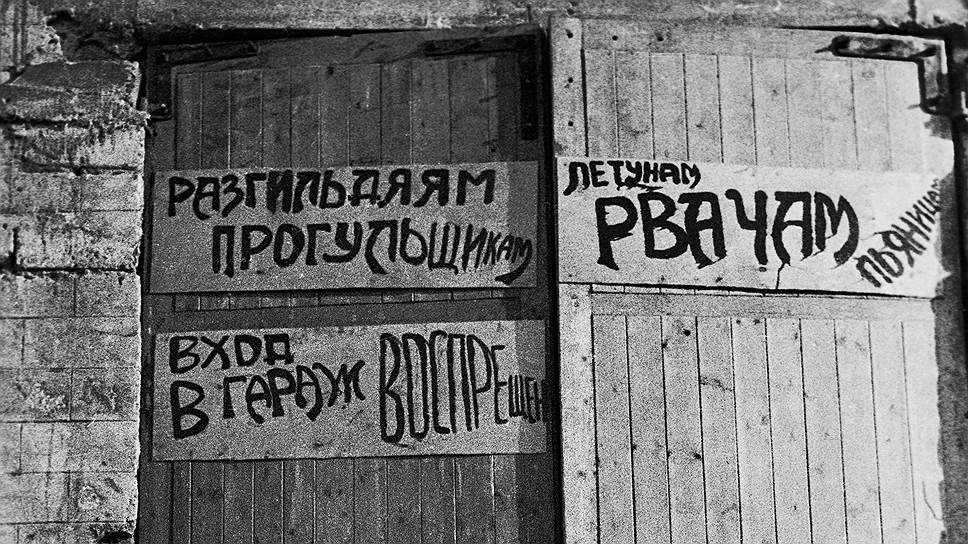 РАЗГИЛЬДЯЯМ
ПРОГУЛЬЩИКАМ
ЛЕТУНАМ
РВАЧАМ
ПЬЯНИЦАМ
ВХОД
В ГАРАЖ ВОСПРЕЩЕН